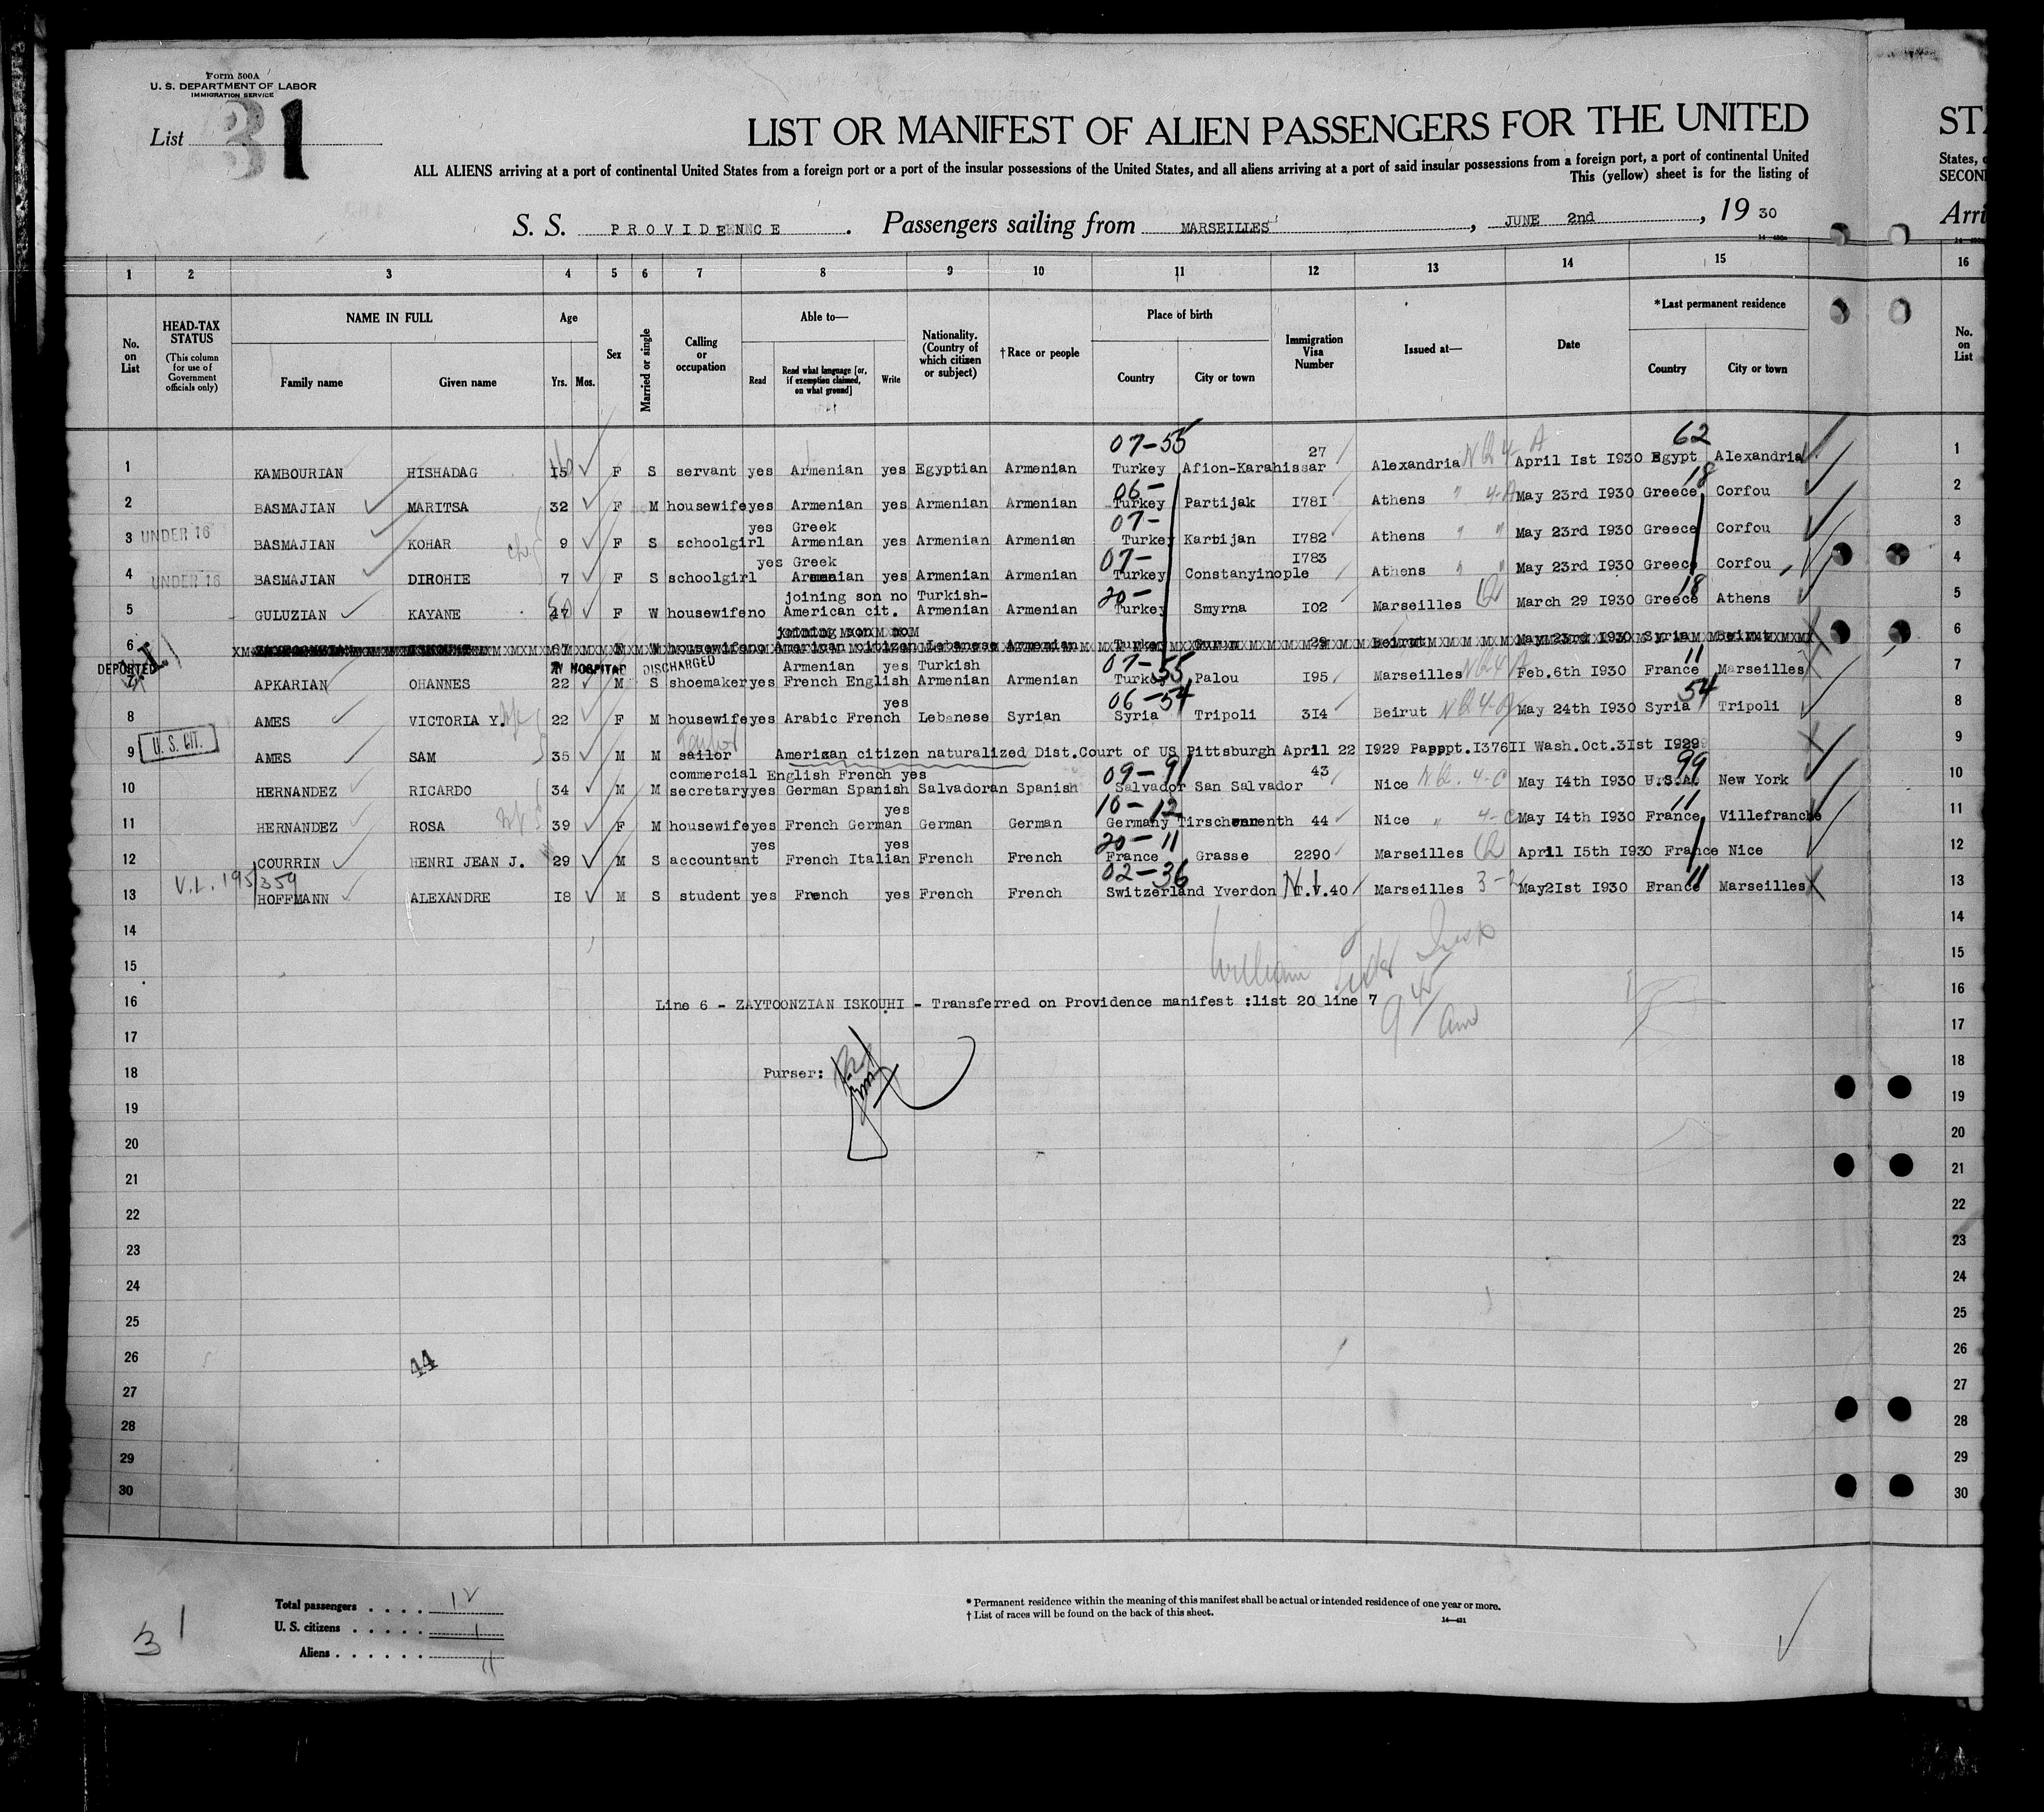 Form 500A
U. S. DEPARTMENT OF LABOR
IMMIGRATION SERVICE
List 31
LIST OR MANIFEST OF ALIEN PASSENGERS FOR THE UNITED
STA
ALL ALIENS arriving at a port of continental United States from a foreign port or a port of the insular possessions of the United States, and all aliens arriving at a port of said insular possessions from a foreign port, a port of continental United
States, o
This (yellow) sheet is for the listing of
SECOND
S. S. PROVIDENCE . Passengers sailing from MARSEILLES , JUNE 2nd , 19 30
Arri
1 2 3 4 5 6 7 8 9 10 11 12 13 14 15 16
No. on List
HEAD-TAX STATUS
(This column for use of Government officials only)
NAME IN FULL
Family name Given name
Age
Yrs. Mos.
Sex
Married or single
Calling or occupation
Able to—
Read
Read what language [or, if exemption claimed, on what ground]
Write
Nationality. (Country of which citizen or subject)
†Race or people
Place of birth
Country City or town
Immigration Visa Number
Issued at—
Date
*Last permanent residence
Country City or town
No. on List
07-55 62
1 KAMBOURIAN HISHADAG I5 F S servant yes Armenian yes Egyptian Armenian Turkey Afion-Karahissar 27 Alexandria NQ 4-A April Ist I930 Egypt Alexandria 1
06- 18
2 BASMAJIAN MARITSA 32 F M housewife yes Armenian yes Armenian Armenian Turkey Partijak I78I Athens " 4-A May 23rd I930 Greece Corfou 2
yes Greek 07-
3 UNDER 16 BASMAJIAN KOHAR 9 F S schoolgirl Armenian yes Armenian Armenian Turkey Kartijan I782 Athens " " May 23rd I930 Greece Corfou 3
yes Greek 07- I783
4 UNDER 16 BASMAJIAN DIROHIE 7 F S schoolgirl Armenian yes Armenian Armenian Turkey Constanyinople Athens " " May 23rd I930 Greece Corfou 4
joining son no Turkish- 20- 18
5 GULUZIAN KAYANE 47 F W housewife no American cit. Armenian Armenian Turkey Smyrna I02 Marseilles Q March 29 I930 Greece Athens 5
joining son no
6 67 F W housewife no American citizen Lebanese Armenian Turkey Gurun 29 Beirut May 23rd I930 Syria Beirut 6
DEPORTED IN HOSPITAL DISCHARGED Armenian yes Turkish 07-55 11
7 APKARIAN OHANNES 22 M S shoemaker yes French English Armenian Armenian Turkey Palou I95 Marseilles NQ 4 A Feb.6th I930 France Marseilles 7
yes 06-54 54
8 AMES VICTORIA Y. 22 F M housewife yes Arabic French Lebanese Syrian Syria Tripoli 3I4 Beirut NQ 4-A May 24th I930 Syria Tripoli 8
U. S. CIT. Taylor
9 AMES SAM 35 M M sailor American citizen naturalized Dist.Court of US Pittsburgh April 22 I929 Passpt.I376II Wash.Oct.3Ist I929 9
commercial English French yes 09-91 43 99
10 HERNANDEZ RICARDO 34 M M secretary yes German Spanish Salvadoran Spanish Salvador San Salvador Nice NQ. 4-C May I4th I930 U.S.A. New York 10
yes 10-12 11
11 HERNANDEZ ROSA 39 F M housewife yes French German German German Germany Tirschenenth 44 Nice " 4-C May I4th I930 France Villefranche 11
yes yes 20-11
12 COURRIN HENRI JEAN J. 29 M S accountant French Italian French French France Grasse 2290 Marseilles Q April I5th I930 France Nice 12
V.L. 195/359 02-36 11
13 HOFFMANN ALEXANDRE I8 M S student yes French yes French French Switzerland Yverdon N.I.V.40 Marseilles 3-2 May2Ist I930 France Marseilles 13
14 14
15 William 15
16 Line 6 - ZAYTOONZIAN ISKOUHI - Transferred on Providence manifest :list 20 line 7 16
17 9 45 am 17
18 Purser: 18
19 19
20 20
21 21
22 22
23 23
24 24
25 25
26 44 26
27 27
28 28
29 29
30 30
Total passengers . . . . 12
U. S. citizens . . . . . 1
Aliens . . . . . . 11
31
* Permanent residence within the meaning of this manifest shall be actual or intended residence of one year or more.
† List of races will be found on the back of this sheet.
14—431